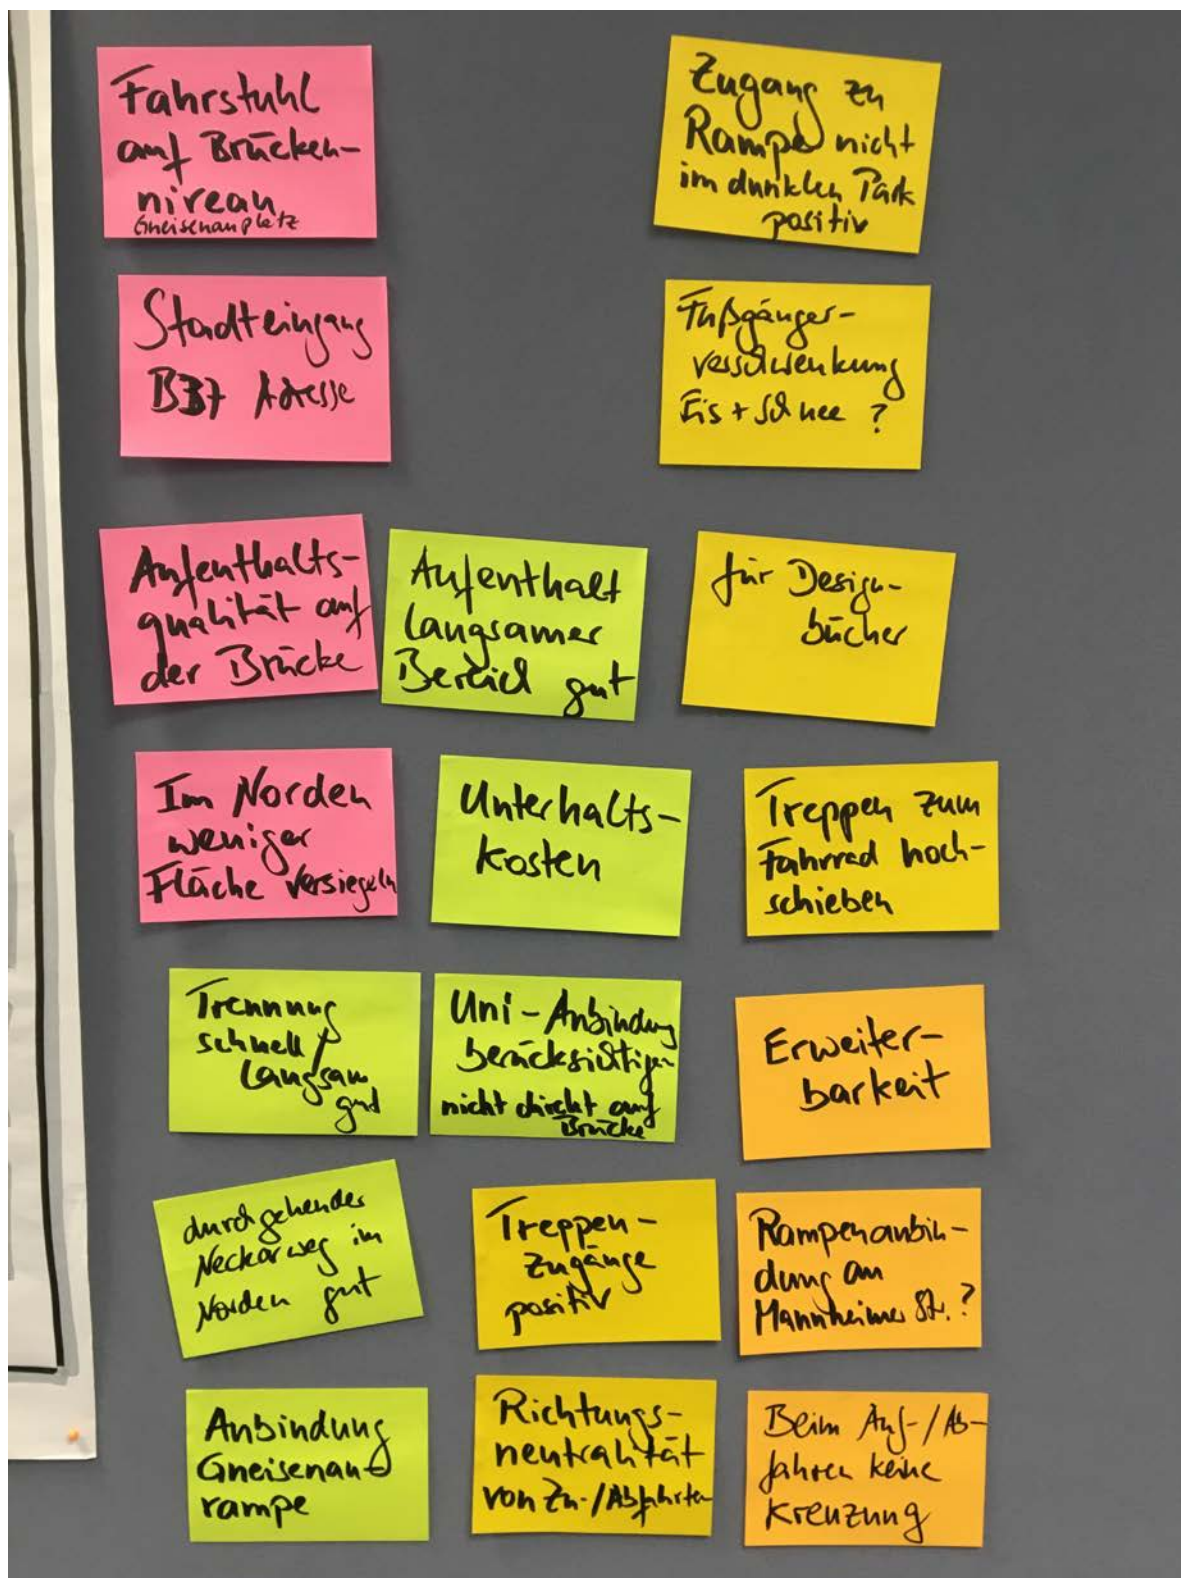 Fahrstuhl
auf Brücken-
niveau
Gneisenauplatz
Zugang zu
Rampe nicht
im dunklen Park
positiv
Stadteingang
B37 Adresse
Fußgänger-
verschwenkung
Eis + Schnee ?
Aufenthalts-
qualität auf
der Brücke
Aufenthalt
langsamer
Bereich gut
für Design-
bücher
Im Norden
weniger
Fläche versiegeln
Unterhalts-
kosten
Treppen zum
Fahrrad hoch-
schieben
Trennung
schnell/
langsam
gut
Uni-Anbindung
berücksichtigen
nicht direkt auf
Brücke
Erweiter-
barkeit
durchgehender
Neckarweg im
Norden gut
Treppen-
zugänge
positiv
Rampenanbin-
dung an
Mannheimer Str.?
Anbindung
Gneisenau-
rampe
Richtungs-
neutralität
von Zu-/Abfahrten
Beim Auf-/Ab-
fahren keine
Kreuzung